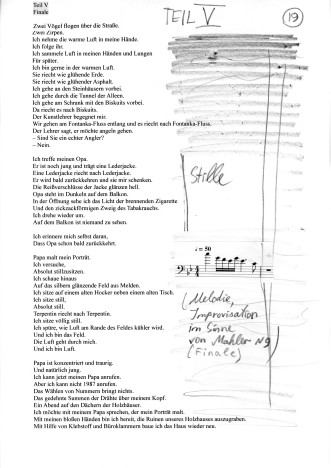 Teil V
Finale
TEIL V
19
Zwei Vögel flogen über die Straße.
Zwei Zirpen.
Ich nehme die warme Luft in meine Hände.
Ich folge ihr.
Ich sammele Luft in meinen Händen und Lungen
Für später.
Ich bin gerne in der warmen Luft.
Sie riecht wie glühende Erde.
Sie riecht wie glühender Asphalt.
Ich gehe an den Steinhäusern vorbei.
Ich gehe durch die Tunnel der Alleen.
Ich gehe am Schrank mit den Biskuits vorbei.
Da riecht es nach Biskuits.
Der Kunstlehrer begegnet mir.
Wir gehen am Fontanka-Fluss entlang und es riecht nach Fontanka-Fluss.
Der Lehrer sagt, er möchte angeln gehen.
– Sind Sie ein echter Angler?
– Nein.
Ich treffe meinen Opa.
Er ist noch jung und trägt eine Lederjacke.
Eine Lederjacke riecht nach Lederjacke.
Er wird bald zurückkehren und sie mir schenken.
Die Reißverschlüsse der Jacke glänzen hell.
Opa steht im Dunkeln auf dem Balkon.
In der Öffnung sehe ich das Licht der brennenden Zigarette
Und den zickzackförmigen Zweig des Tabakrauchs.
Ich drehe wieder um.
Auf dem Balkon ist niemand zu sehen.
Stille
Ich erinnere mich selbst daran,
Dass Opa schon bald zurückkehrt.
♩ = 50
Papa malt mein Porträt.
Ich versuche,
Absolut stillzusitzen.
Ich schaue hinaus
Auf das silbern glänzende Feld aus Melden.
Ich sitze auf einem alten Hocker neben einem alten Tisch.
Ich sitze still,
Absolut still.
Terpentin riecht nach Terpentin.
Ich sitze völlig still.
Ich spüre, wie Luft am Rande des Feldes kühler wird.
Und ich bin das Feld.
Die Luft geht durch mich.
Und ich bin Luft.
(Melodie,
Improvisation
im Sinne
von Mahler N9
(Finale)
Papa ist konzentriert und traurig.
Und natürlich jung.
Ich kann jetzt meinen Papa anrufen.
Aber ich kann nicht 1987 anrufen.
Das Wählen von Nummern bringt nichts.
Das gedehnte Sammen der Drähte über meinem Kopf.
Ein Abend auf den Dächern der Holzhäuser.
Ich möchte mit meinem Papa sprechen, der mein Porträt malt.
Mit meinen bloßen Händen bin ich bereit, die Ruinen unseres Holzhauses auszugraben.
Mit Hilfe von Klebstoff und Büroklammern baue ich das Haus wieder neu.